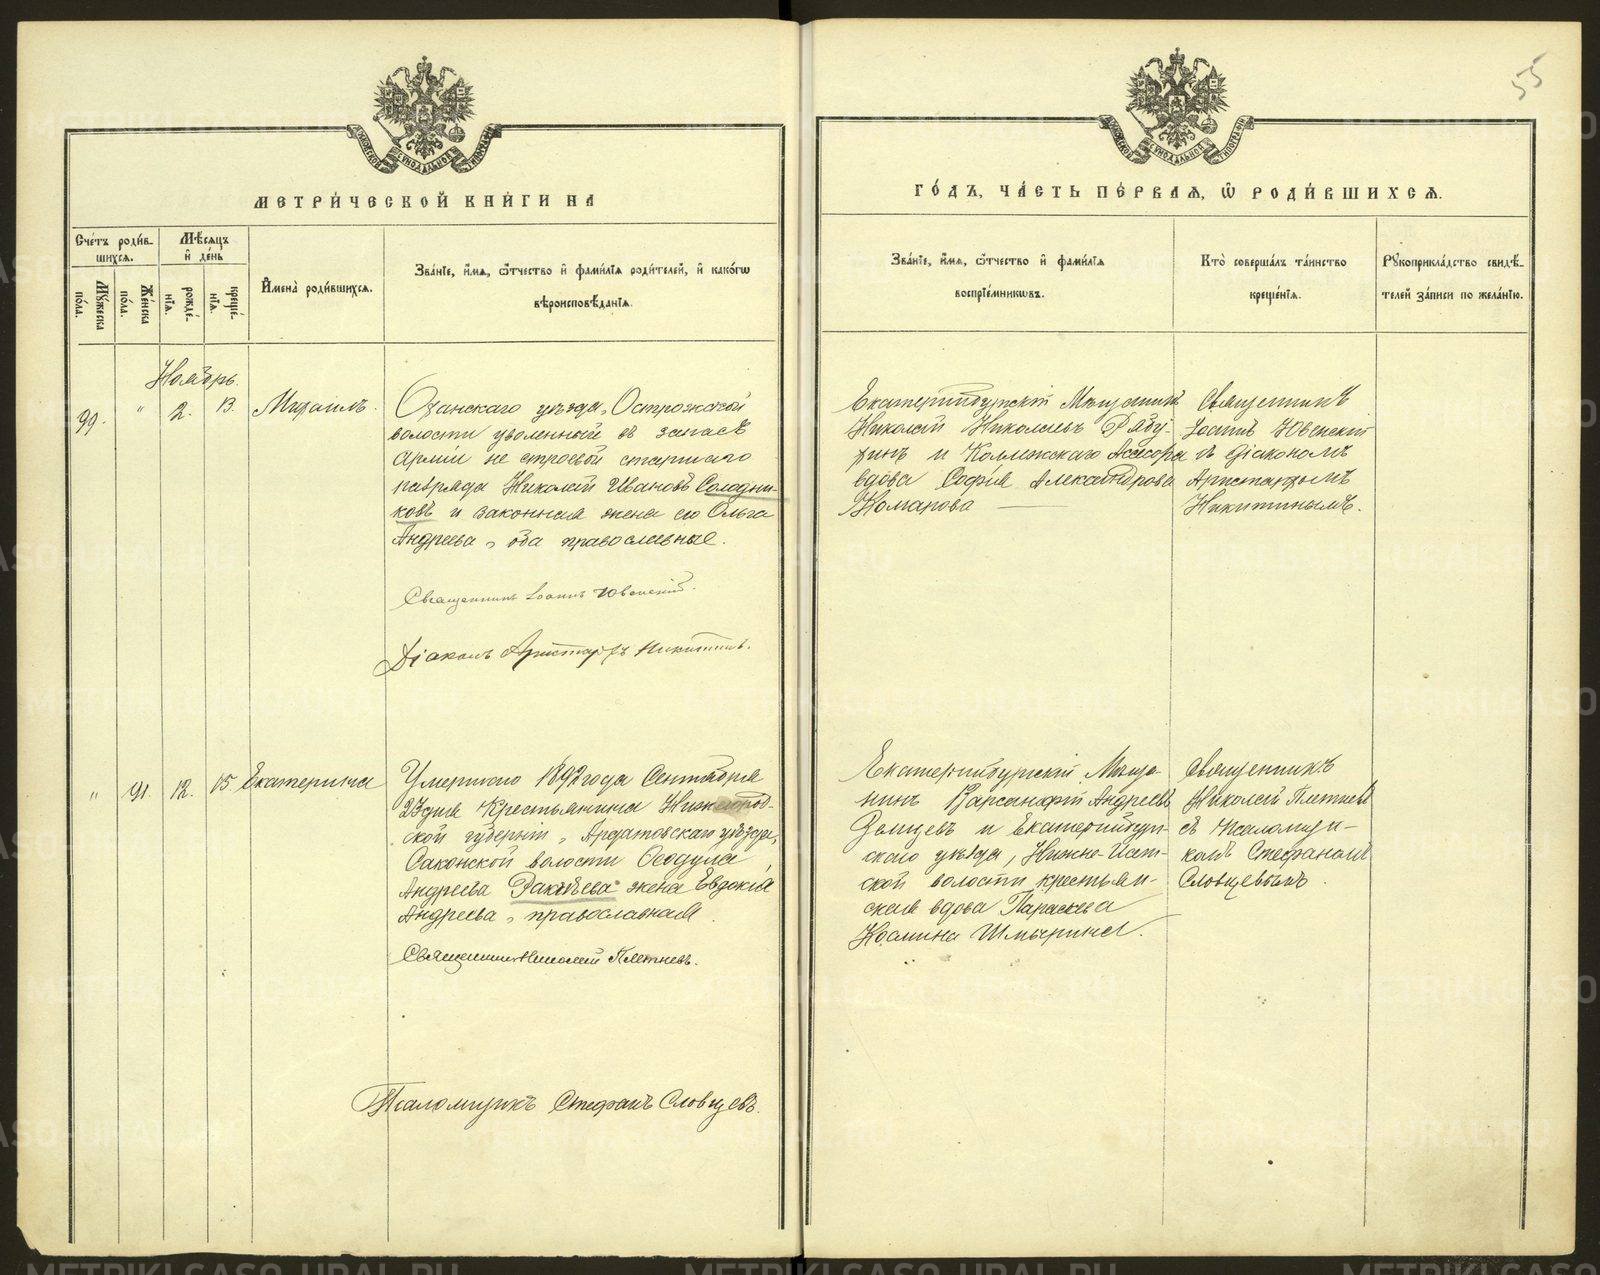 55
МЕТРИ́ЧЕСКОЙ КНИ́ГИ НА
ГО́ДЪ, ЧА́СТЬ ПЕ́РВАЯ, Ѡ҆ РОДИ́ВШИХСѦ.
Сче́тъ роди́в-
шихсѧ.
Мꙋ́жеска
по́ла.
Же́нска
по́ла.
Мѣ́сѧцъ
и҆ де́нь
рожде́-
нїѧ.
креще́-
нїѧ.
И҆мена̀ роди́вшихсѧ.
Зва́нїе, и҆́мѧ, ѻ҆́тчество и҆ фами́лїѧ роди́телей, и҆ како́гѡ
вѣроисповѣ́данїѧ.
Зва́нїе, и҆́мѧ, ѻ҆́тчество и҆ фами́лїѧ
воспрїе́мникѡвъ.
Кто̀ соверша́лъ та́инство
креще́нїѧ.
Рꙋкоприкла́дство свидѣ́-
телей за́писи по жела́нїю.
Ноябрь.
99. " 2. 13. Михаилъ.
Оханскаго уѣзда, Острожской
волости уволенный въ запасъ
Арміи не строевой старшаго
разряда Николай Ивановъ Солодни-
ковъ и законная жена его Ольга
Андреева, оба православные.
Священникъ Іоаннъ Ювенскій.
Діаконъ Аристархъ Никитинъ.
Екатеринбургскій Мѣщанинъ
Николай Николаевъ Рябу-
хинъ и Коллежскаго Асесора
вдова Софія Александрова
Комарова
Священникъ
Іоаннъ Ювенскій
съ Діакономъ
Аристархомъ
Никитинымъ.
" 91. 12. 15 Екатерина
Умершаго 1892 года Сентября
23 дня Крестьянина Нижегород-
ской губерніи, Ардатовскаго уѣзда,
Саконской волости Ѳеодула
Андреева Рактѣева жена Евдокія
Андреева, православная.
Священникъ Николай Плетневъ.
Псаломщикъ Стефанъ Словцевъ.
Екатеринбургскій Мѣща-
нинъ Варсанофій Андреевъ
Ромцевъ и Екатеринбург-
скаго уѣзда, Нижне-Исет-
ской волости крестьян-
ская вдова Параскева
Космина Шмырина.
Священникъ
Николай Плетневъ
съ Псаломщи-
комъ Стефаномъ
Словцевымъ.